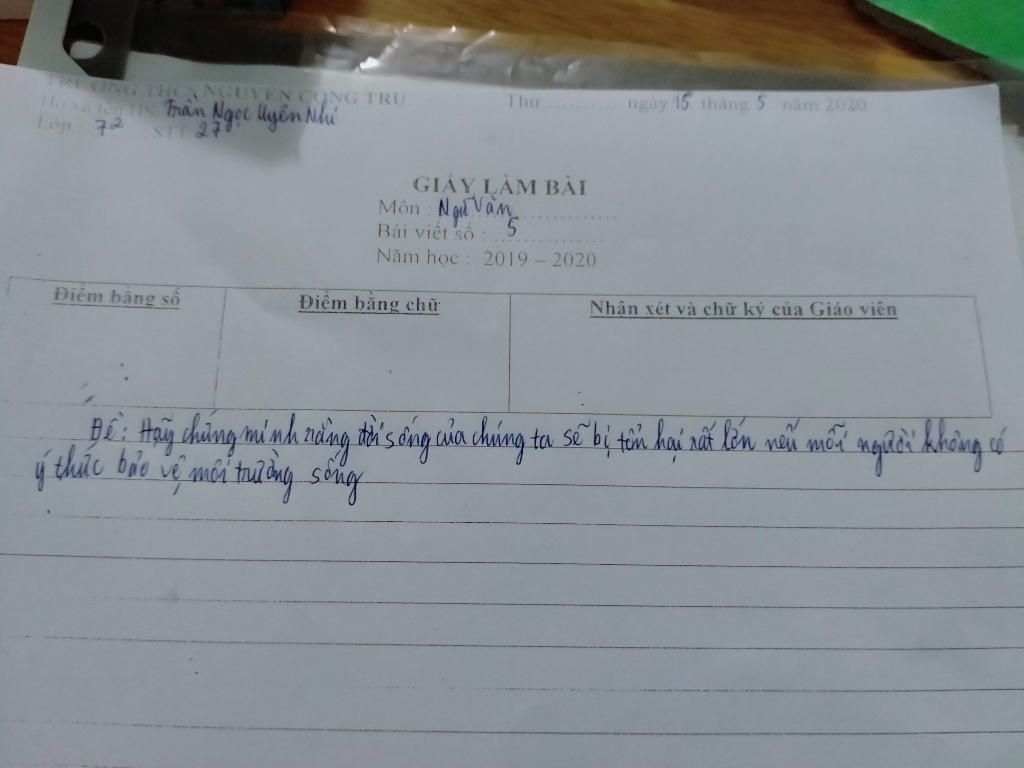 TRƯỜNG THCS NGUYỄN CÔNG TRỨ
Họ và tên HS: Trần Ngọc Uyên Nhi
Thứ ............ ngày 15 tháng 5 . năm 2020
Lớp : 7² . STT 27
GIẤY LÀM BÀI
Môn : Ngữ Văn
Bài viết số : 5
Năm học : 2019 – 2020
Điểm bằng số
Điểm bằng chữ
Nhận xét và chữ ký của Giáo viên
Đề: Hãy chứng minh rằng đời sống của chúng ta sẽ bị tổn hại rất lớn nếu mỗi người không có
ý thức bảo vệ môi trường sống